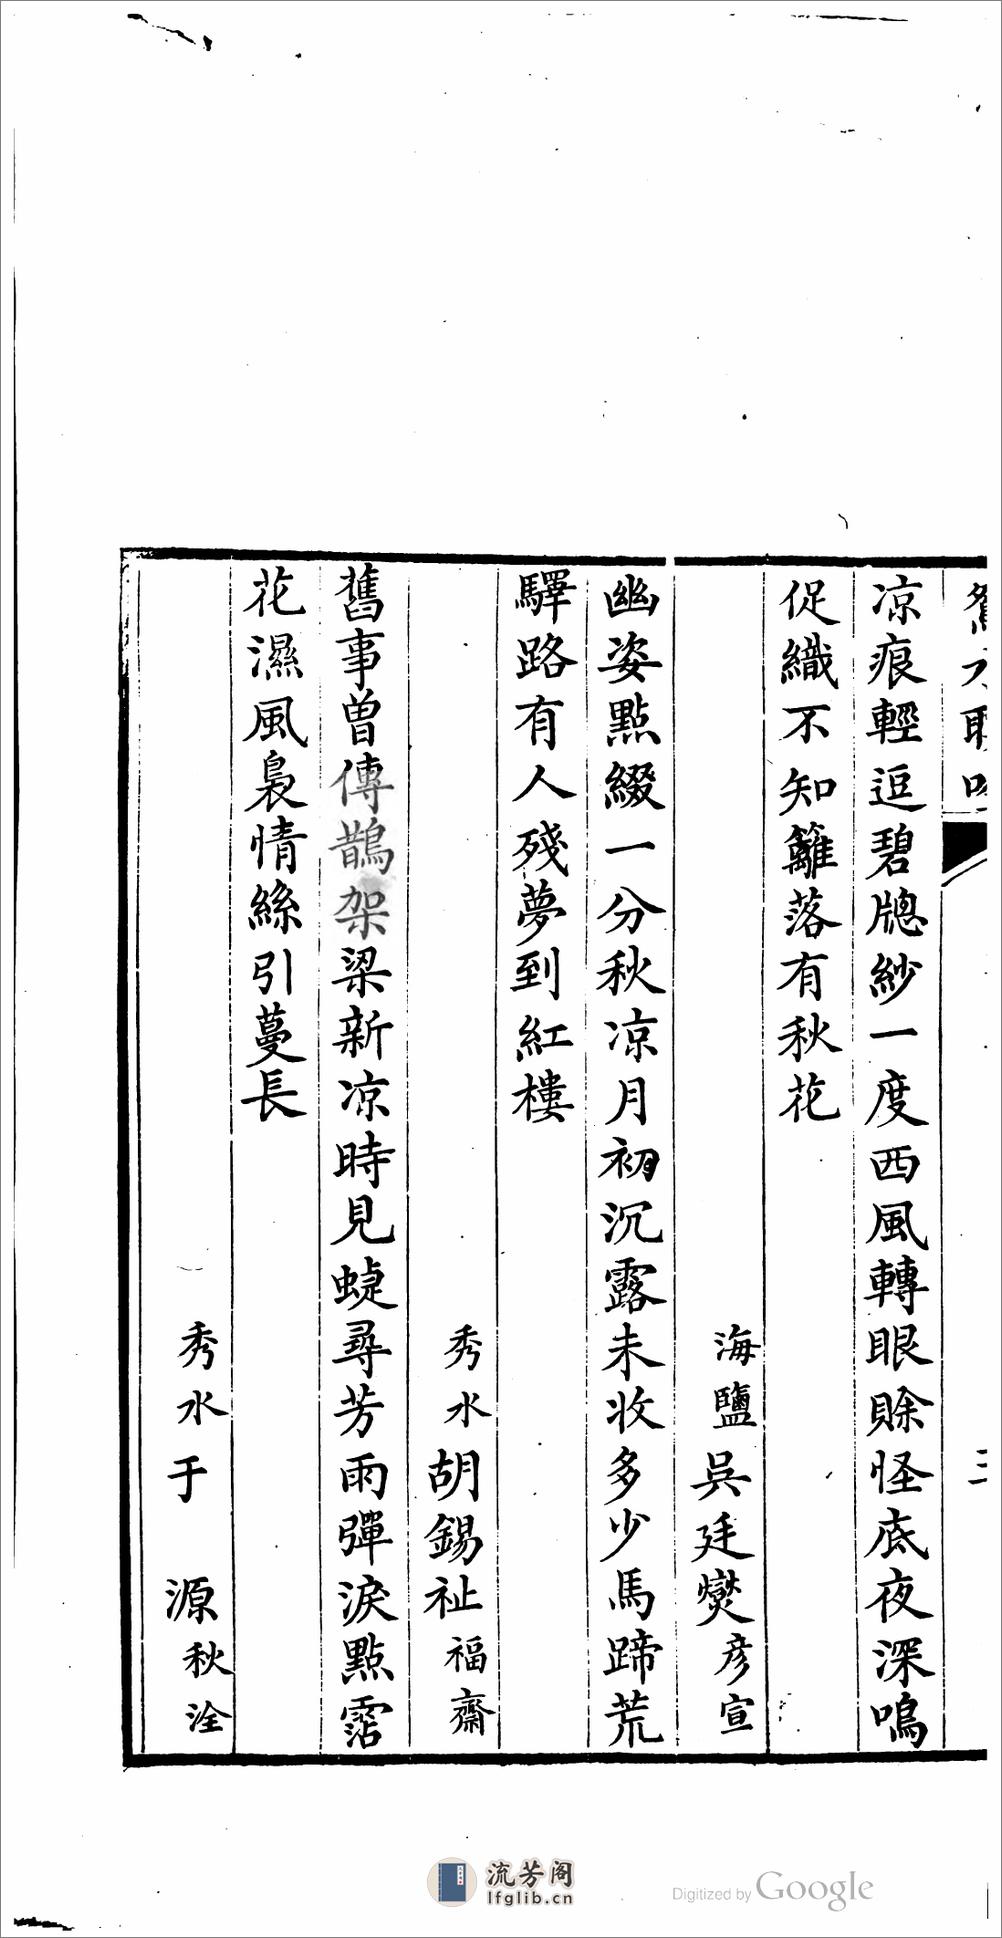 鴛水聯吟
三
凉痕輕逗碧牕紗一度西風轉眼賒怪底夜深鳴
促織不知籬落有秋花
海鹽吳廷燮彦宣
幽姿點綴一分秋凉月初沉露未收多少馬蹄荒
驛路有人殘夢到紅樓
秀水胡錫祉福齋
舊事曾傳鵲架梁新凉時見蜨尋芳雨彈淚點霑
花濕風裊情絲引蔓長
秀水于源秋洤
流芳阁
lfglib.cn
Digitized by Google